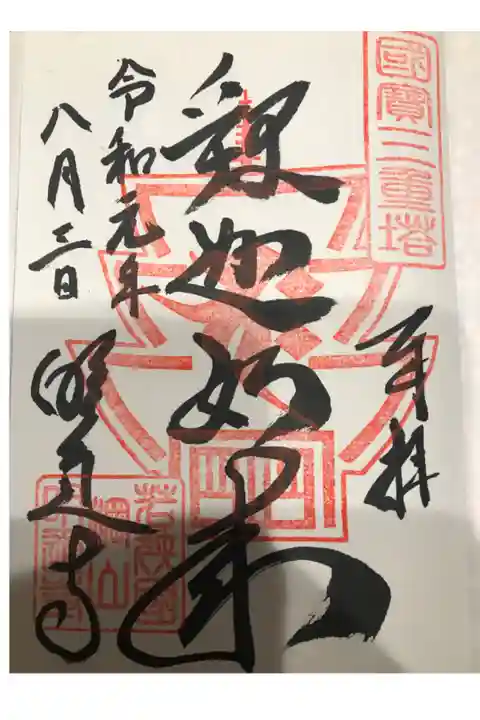 國寶三重塔
奉拝
釋迦如来
令和元年
八月三日
明通寺